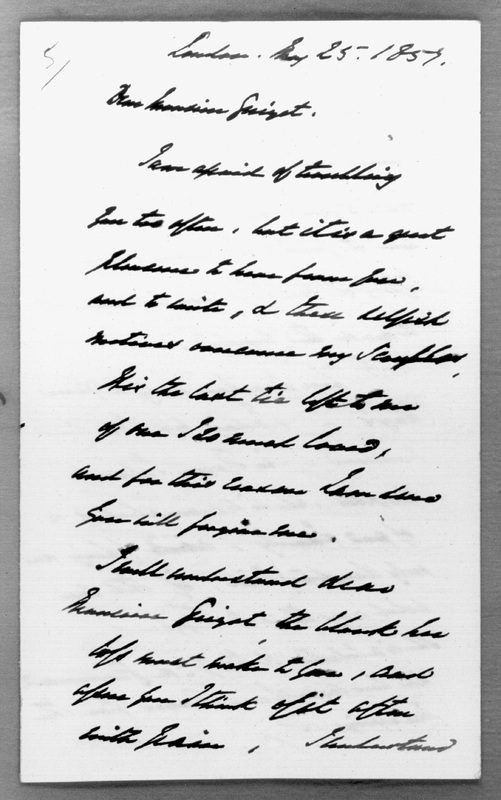 London. May 25. 1857.
Dear Monsieur Guizot.
I am afraid of troubling
you too often, but it is a great
pleasure to hear from you,
and to write, & these selfish
motives overcome my scruples,
It is the last tie left to me
of one I so much loved,
and for this reason I am sure
you will forgive me.
I well understand dear
Monsieur Guizot the blank her
loss must make to you, and
assure you I think of it often
with pain, I understand